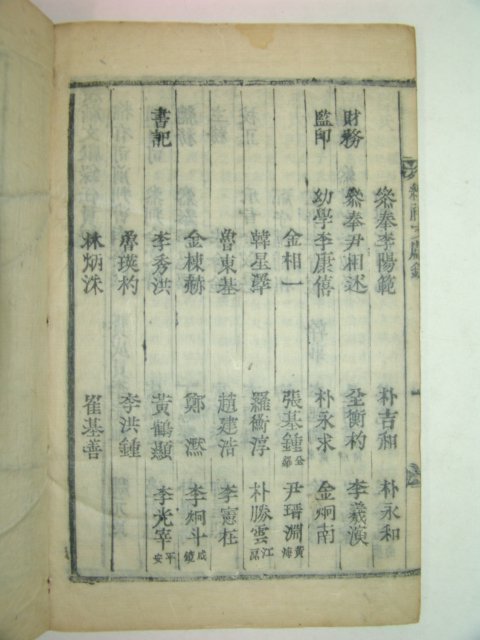 叅奉李陽範 朴吉和 朴永和
財務 叅奉尹相述 全衡杓 李羲演
監印 幼學李康僖 朴永求 金炯南
金相一 張基鍾 尹瑨淵
韓星澤 羅衡淳 朴勝雲
魯東基 趙建浩 李憲在
金棟赫 鄭濍 李炯斗 咸鏡
書記 李秀洪 黃鶴顯 李光宰 平安
魯瑛杓 李洪鍾
林炳洙 崔基善